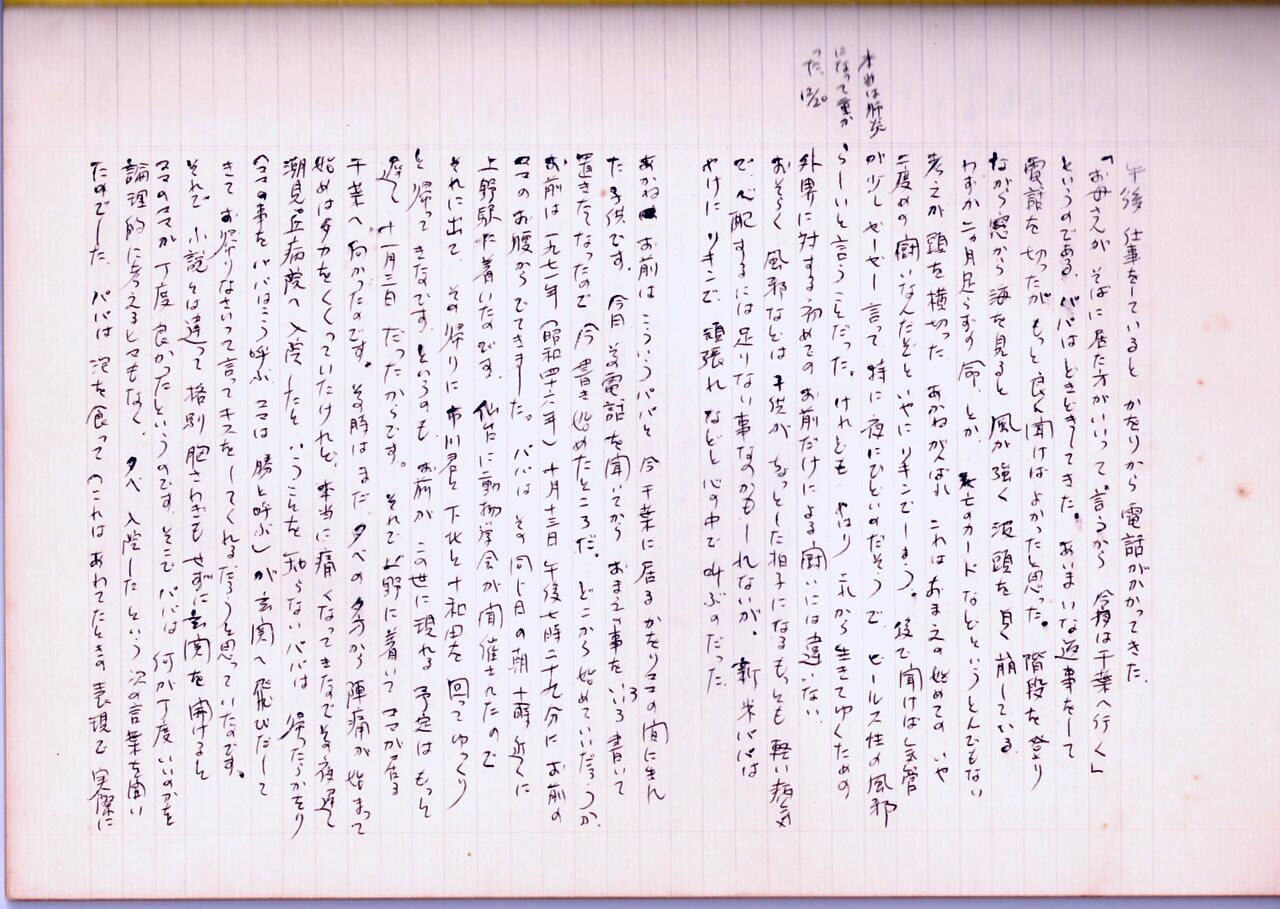 午後 仕事をしていると かをりから電話がかかってきた
「お母さんが そばに居た方がいいって 言うから 今夜は千葉へ行く」
というのである。パパは どきどきしてきた。あいまいな返事をして
電話を切ったが もっと良く聞けばよかったと思った。階段を登り
ながら窓から海を見ると 風が強く 波頭を白く崩している
わずか二ヶ月足らずの命、とか 死亡のカードなどというとんでもない
考えが頭を横切った あかねがんばれ これはおまえの始めての いや
二度めの闘いなんだぞと いやにリキンでしまう。後で聞けば気管
が少しゼーゼー言って、特に夜にひどいのだそうで、ビールス性の風邪
らしいと言うことだった。けれども やはり これから生きてゆくための
外界に対する初めてのお前だけによる闘いには違いない
おそらく 風邪などは 子供が ちょっとした拍子になるもっとも軽い病気
で、心配するには足りない事なのかもしれないが、新米パパは
やけにリキンで、頑張れ などと心の中で叫ぶのだった
本当は肺炎
になって重か
った、12/20
あかね お前は こういうパパと 今千葉に居る かをりママの間に生れ
た子供です。今日 その電話を聞いてから おまえの事をいろいろ書いて
置きたくなったので 今書き始めたところだ。どこから始めていいだろうか
お前は一九七一年(昭和四十六年)十月十三日 午後七時二十九分に お前の
ママのお腹からでてきました。パパは その同じ日の朝 十時近くに
上野駅に着いたのです。仙台に動物学会が開催されたので
それに出て、その帰りに市川君と下北と十和田を 回ってゆっくり
と帰ってきたのです。というのも お前が この世に現れる 予定は もっと
遅く 十一月三日 だったからです。それで上野に着いて ママが居る
千葉へ向かったのです。その時はまだ 夕べの夕方から 陣痛が始まって
始めはタカをくくっていたけれど、本当に痛くなってきたのでその夜遅く
潮見ヶ丘病院へ入院したと いうことを 知らないパパは 帰ったらかをり
(ママの事をパパはこう呼ぶ ママは 勝と呼ぶ)が玄関へ飛びだして
きて お帰りなさいって言ってキスをしてくれるだろうと思っていたのです。
それで 小説とは違って格別 胸さわぎもせずに玄関を開けると
ママのママが丁度良かったというのです。そこでパパは 何が丁度いいのかを
論理的に考えるヒマもなく、夕べ 入院したという 次の言葉を聞い
たのでした。パパは泡を食って(これはあわてたときの表現で 実際に